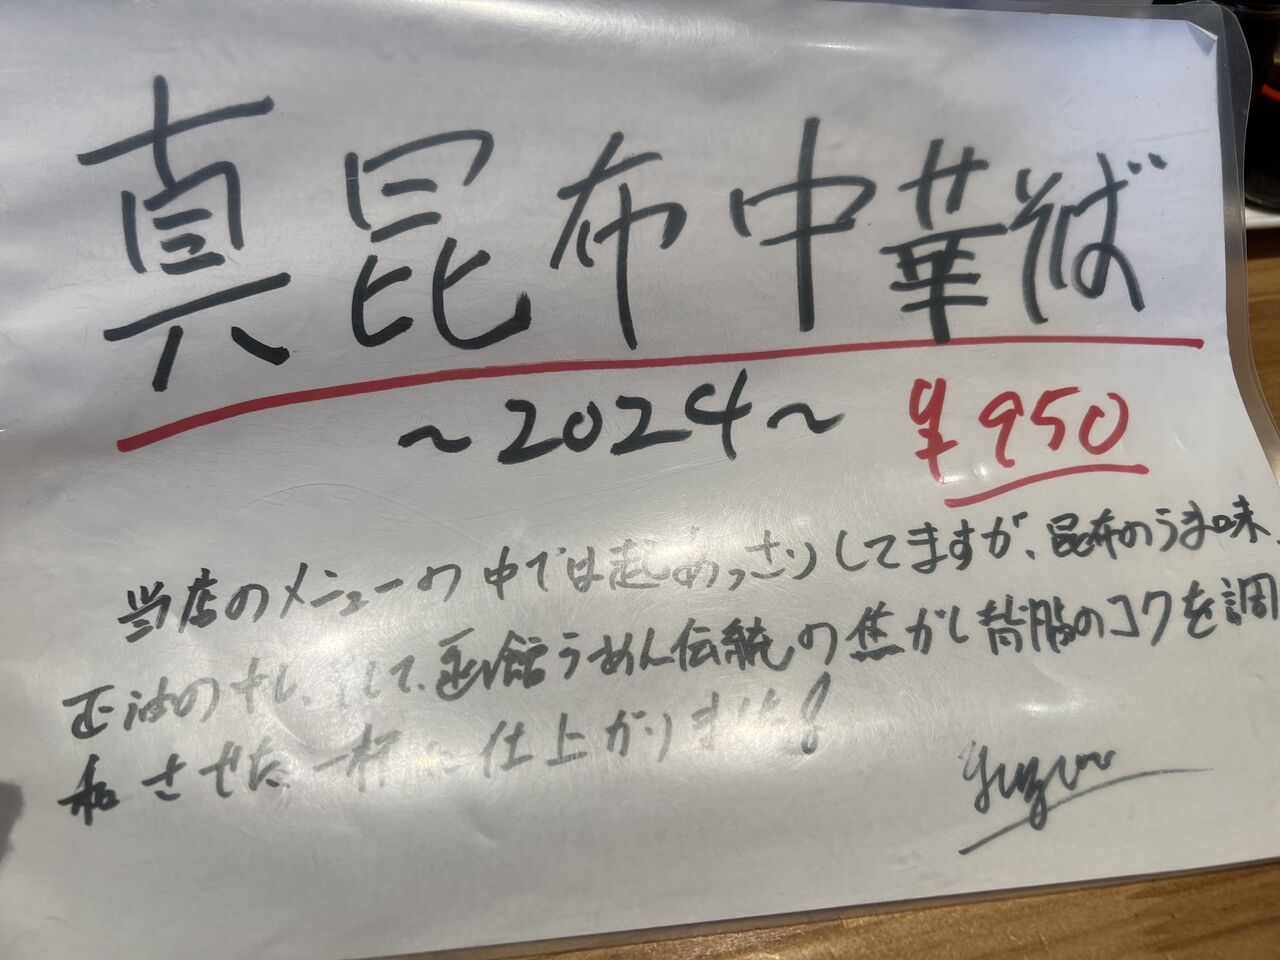 真昆布中華そば
～2024～ ¥950
当店のメニューの中では超あっさりしてますが、昆布のうま味、
正油のキレ、そして、函館らーめん伝統の焦がし背脂のコクを調
和させた一杯に仕上がりました!